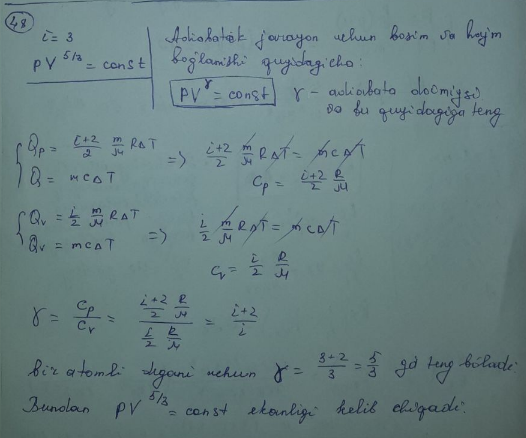 48
i = 3
PV^5/3 = const
Adiabatik jarayon uchun bosim va hajm
bog'lanishi quyidagicha:
PV^γ = const γ - adiabata doimiysi
va bu quyidagiga teng
Qp = i+2/2 m/μ RΔT => i+2/2 m/μ RΔT = mcΔT
Q = mcΔT Cp = i+2/2 R/μ
Qv = i/2 m/μ RΔT => i/2 m/μ RΔT = mcΔT
Qv = mcΔT Cv = i/2 R/μ
γ = Cp/Cv = (i+2/2 R/μ)/(i/2 R/μ) = i+2/i
bir atomli degani uchun γ = 3+2/3 = 5/3 ga teng bo'ladi
Bundan PV^5/3 = const ekanligi kelib chiqadi.